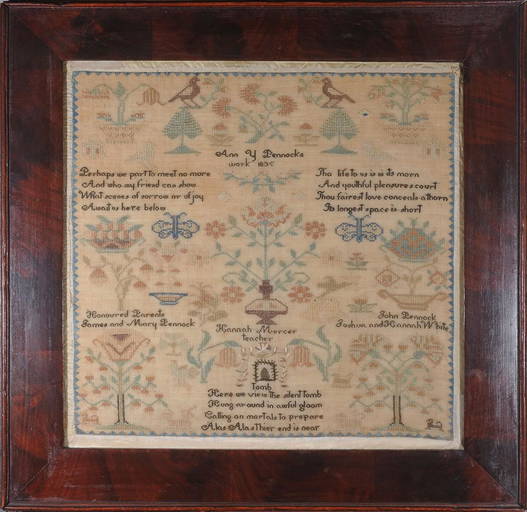 Ann Y Pennock's
work 1835
Perhaps we part to meet no more
And who my friend can show
What scenes of sorrow or of joy
Await us here below
Tho life to us is in its morn
And youthful pleasures court
Thou fairest love conceals a thorn
Its longest space is short
Honoured Parents
James and Mary Pennock
Hannah Mercer
teacher
John Pennock
Joshua and Hannah White
Tomb
Here we view the silent tomb
Hung around in awful gloom
Calling on mortals to prepare
Alas Alas Thier end is near